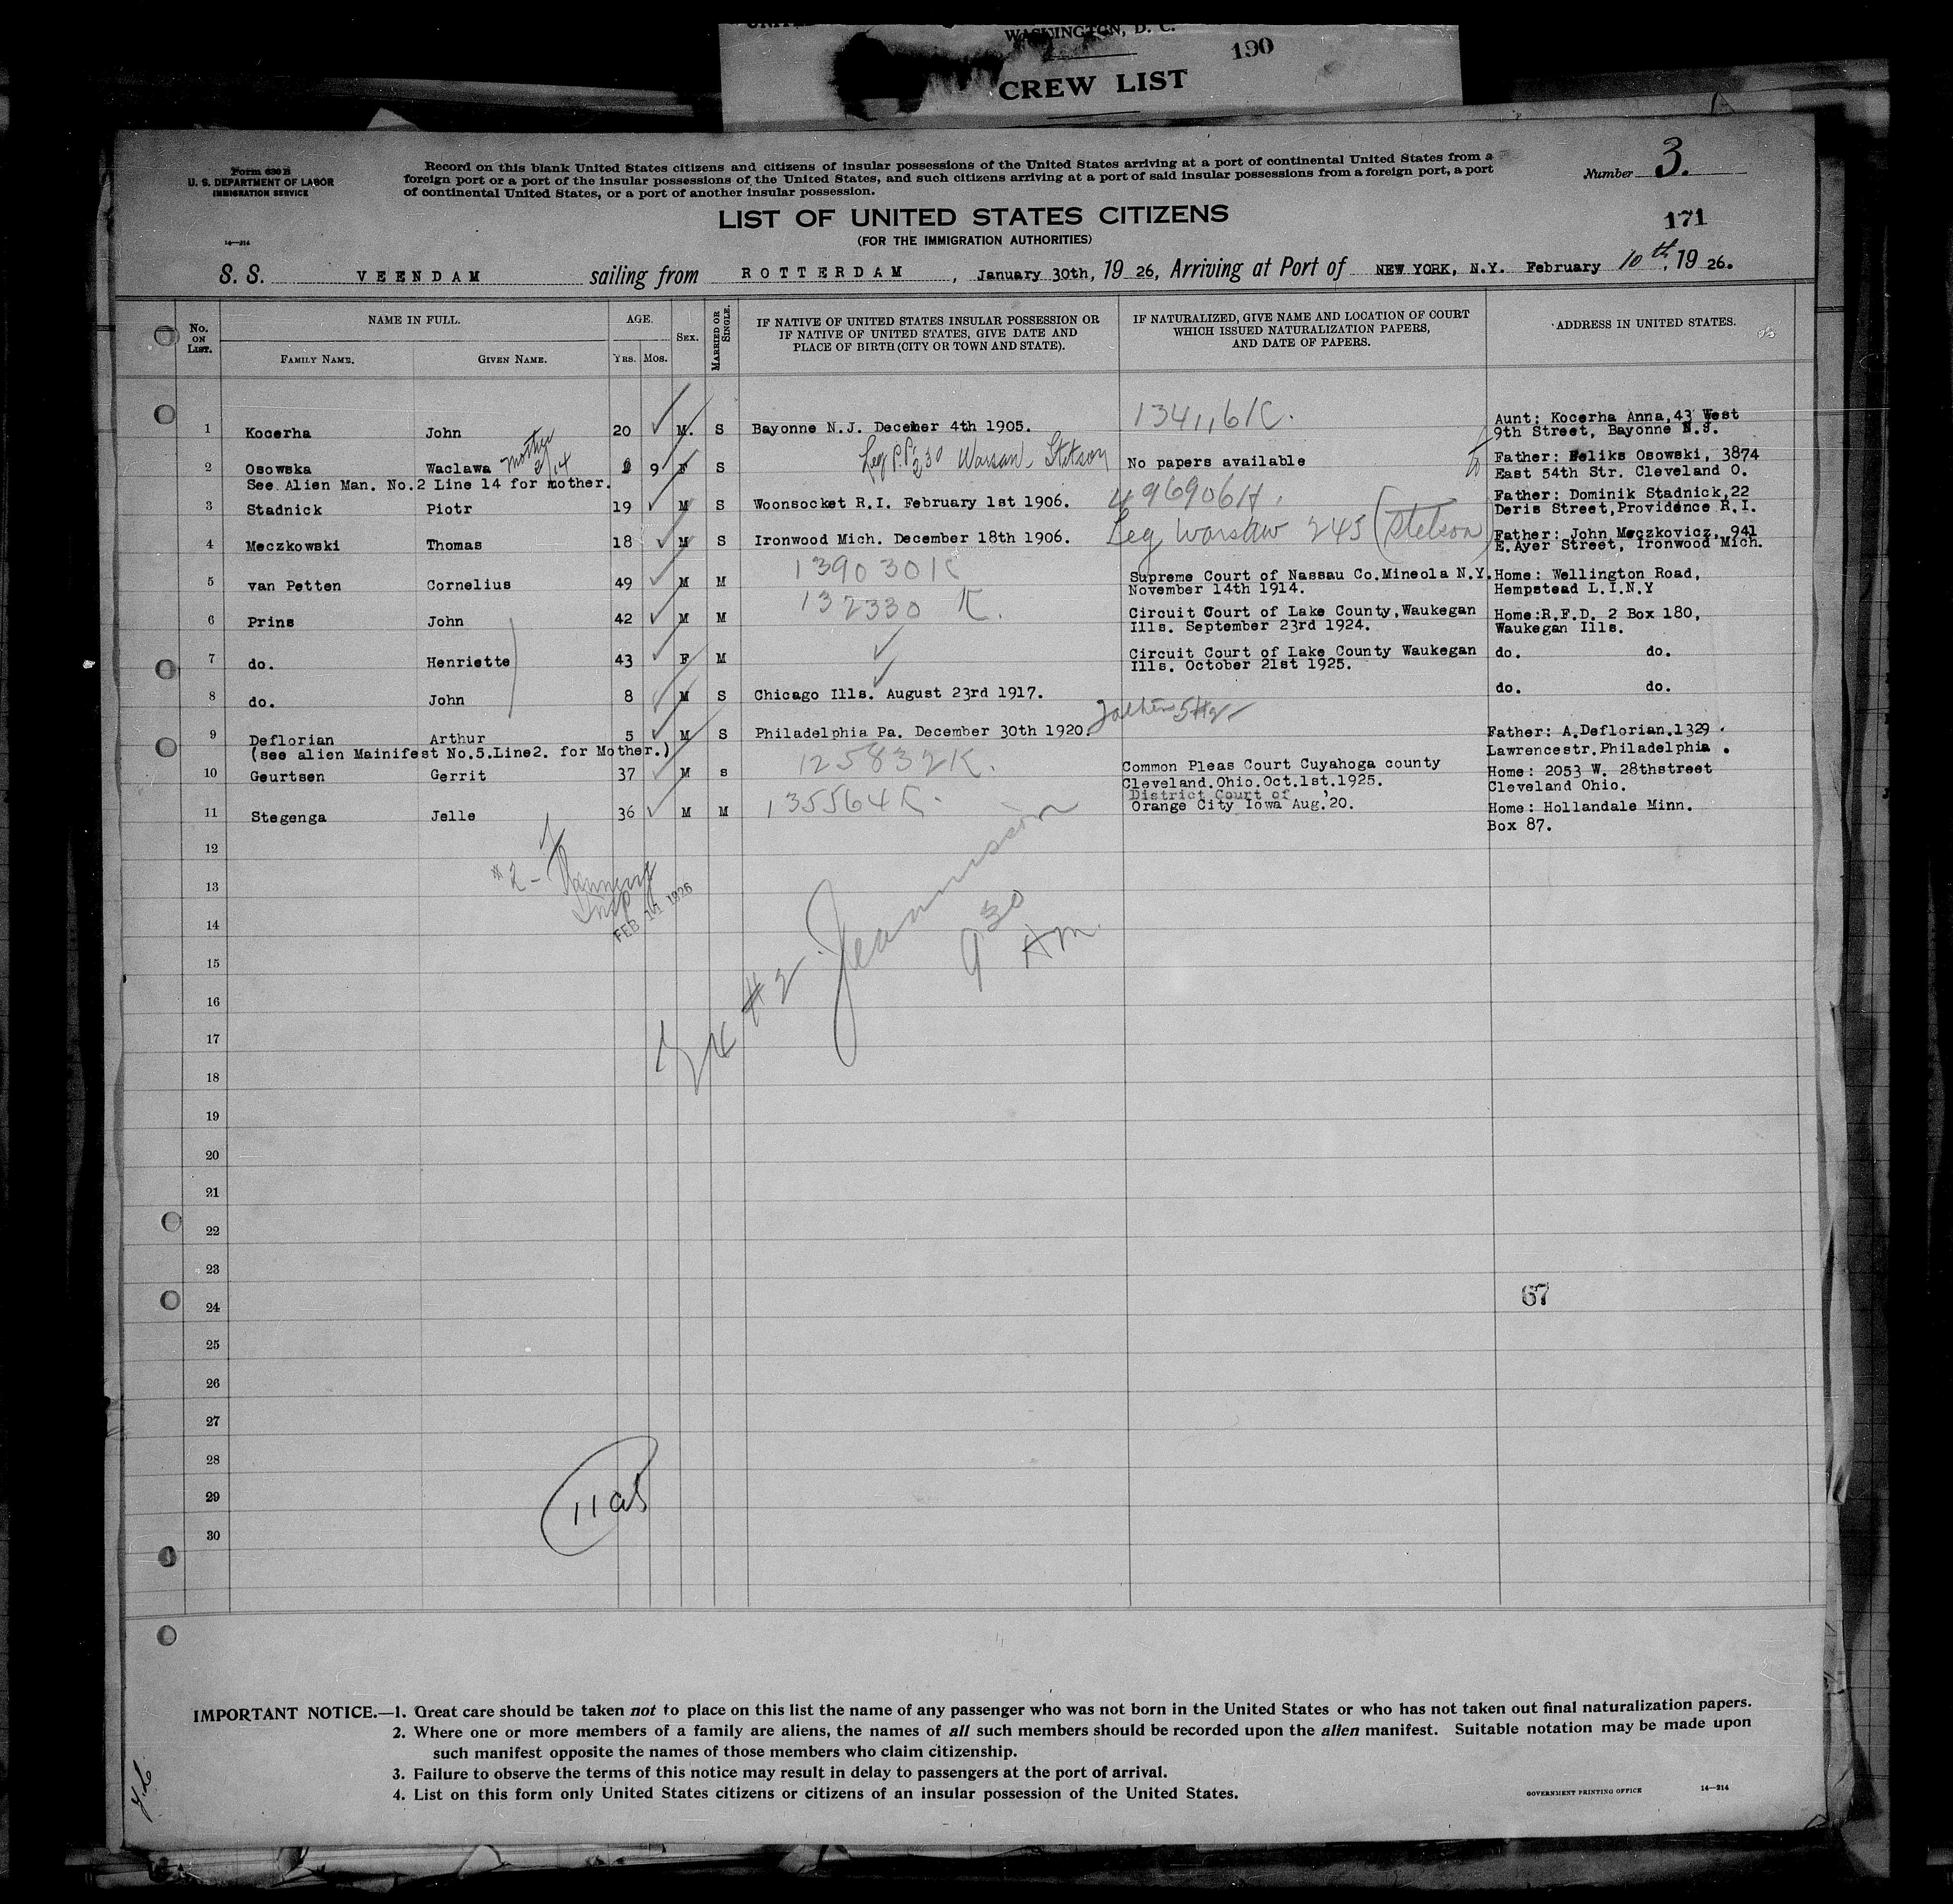 WASHINGTON, D. C.
190
CREW LIST
Form 630 B
U. S. DEPARTMENT OF LABOR
IMMIGRATION SERVICE
14—214
Record on this blank United States citizens and citizens of insular possessions of the United States arriving at a port of continental United States from a
foreign port or a port of the insular possessions of the United States, and such citizens arriving at a port of said insular possessions from a foreign port, a port
of continental United States, or a port of another insular possession.
Number 3.
LIST OF UNITED STATES CITIZENS
171
(FOR THE IMMIGRATION AUTHORITIES)
S. S. VEENDAM sailing from ROTTERDAM, January 30th, 19 26, Arriving at Port of NEW YORK, N.Y. February 10th, 19 26.
No. ON LIST. NAME IN FULL. AGE. SEX. MARRIED OR SINGLE. IF NATIVE OF UNITED STATES INSULAR POSSESSION OR IF NATIVE OF UNITED STATES, GIVE DATE AND PLACE OF BIRTH (CITY OR TOWN AND STATE). IF NATURALIZED, GIVE NAME AND LOCATION OF COURT WHICH ISSUED NATURALIZATION PAPERS, AND DATE OF PAPERS. ADDRESS IN UNITED STATES.
FAMILY NAME. GIVEN NAME. YRS. MOS.
1 Kocerha John 20 M. S Bayonne N.J. December 4th 1905. 134116K. Aunt: Kocerha Anna,43 West
9th Street, Bayonne N.J.
2 Osowska Waclawa mother 2/14 9 F S Leg P.P. 230 Warsaw Stetson No papers available Father: Feliks Osowski, 3874
East 54th Str. Cleveland O.
See Alien Man. No.2 Line 14 for mother.
3 Stadnick Piotr 19 M S Woonsocket R.I. February 1st 1906. 496906H. Father: Dominik Stadnick,22
Deris Street,Providence R.I.
4 Meczkowski Thomas 18 M S Ironwood Mich. December 18th 1906. Leg Warsaw 245 (Stetson) Father: John Meczkovicz, 941
E.Ayer Street, Ironwood Mich.
5 van Petten Cornelius 49 M M 139030K Supreme Court of Nassau Co.Mineola N.Y. Home: Wellington Road,
November 14th 1914. Hempstead L.I.N.Y
6 Prins John 42 M M 132330 K. Circuit Court of Lake County,Waukegan Home:R.F.D. 2 Box 180,
Ills. September 23rd 1924. Waukegan Ills.
7 do. Henriette 43 F M Circuit Court of Lake County Waukegan do. do.
Ills. October 21st 1925.
8 do. John 8 M S Chicago Ills. August 23rd 1917. do. do.
9 Deflorian Arthur 5 M S Philadelphia Pa. December 30th 1920. Father: A.Deflorian.1329
(see alien Mainifest No.5.Line2. for Mother.) Lawrencestr.Philadelphia.
10 Geurtsen Gerrit 37 M s 125832K. Common Pleas Court Cuyahoga county Home: 2053 W. 28thstreet
Cleveland.Ohio.Oct.1st.1925. Cleveland Ohio.
11 Stegenga Jelle 36 M M 135564K. District Court of
Orange City Iowa Aug.'20. Home: Hollandale Minn.
Box 87.
12
#2 -
13
Insp
FEB 11 1926
14
9 30
AM
15
#2
16
17
18
19
20
21
22
23
67
24
25
26
27
28
29
30
IMPORTANT NOTICE.—1. Great care should be taken not to place on this list the name of any passenger who was not born in the United States or who has not taken out final naturalization papers.
2. Where one or more members of a family are aliens, the names of all such members should be recorded upon the alien manifest. Suitable notation may be made upon
such manifest opposite the names of those members who claim citizenship.
3. Failure to observe the terms of this notice may result in delay to passengers at the port of arrival.
4. List on this form only United States citizens or citizens of an insular possession of the United States.
GOVERNMENT PRINTING OFFICE 14—214